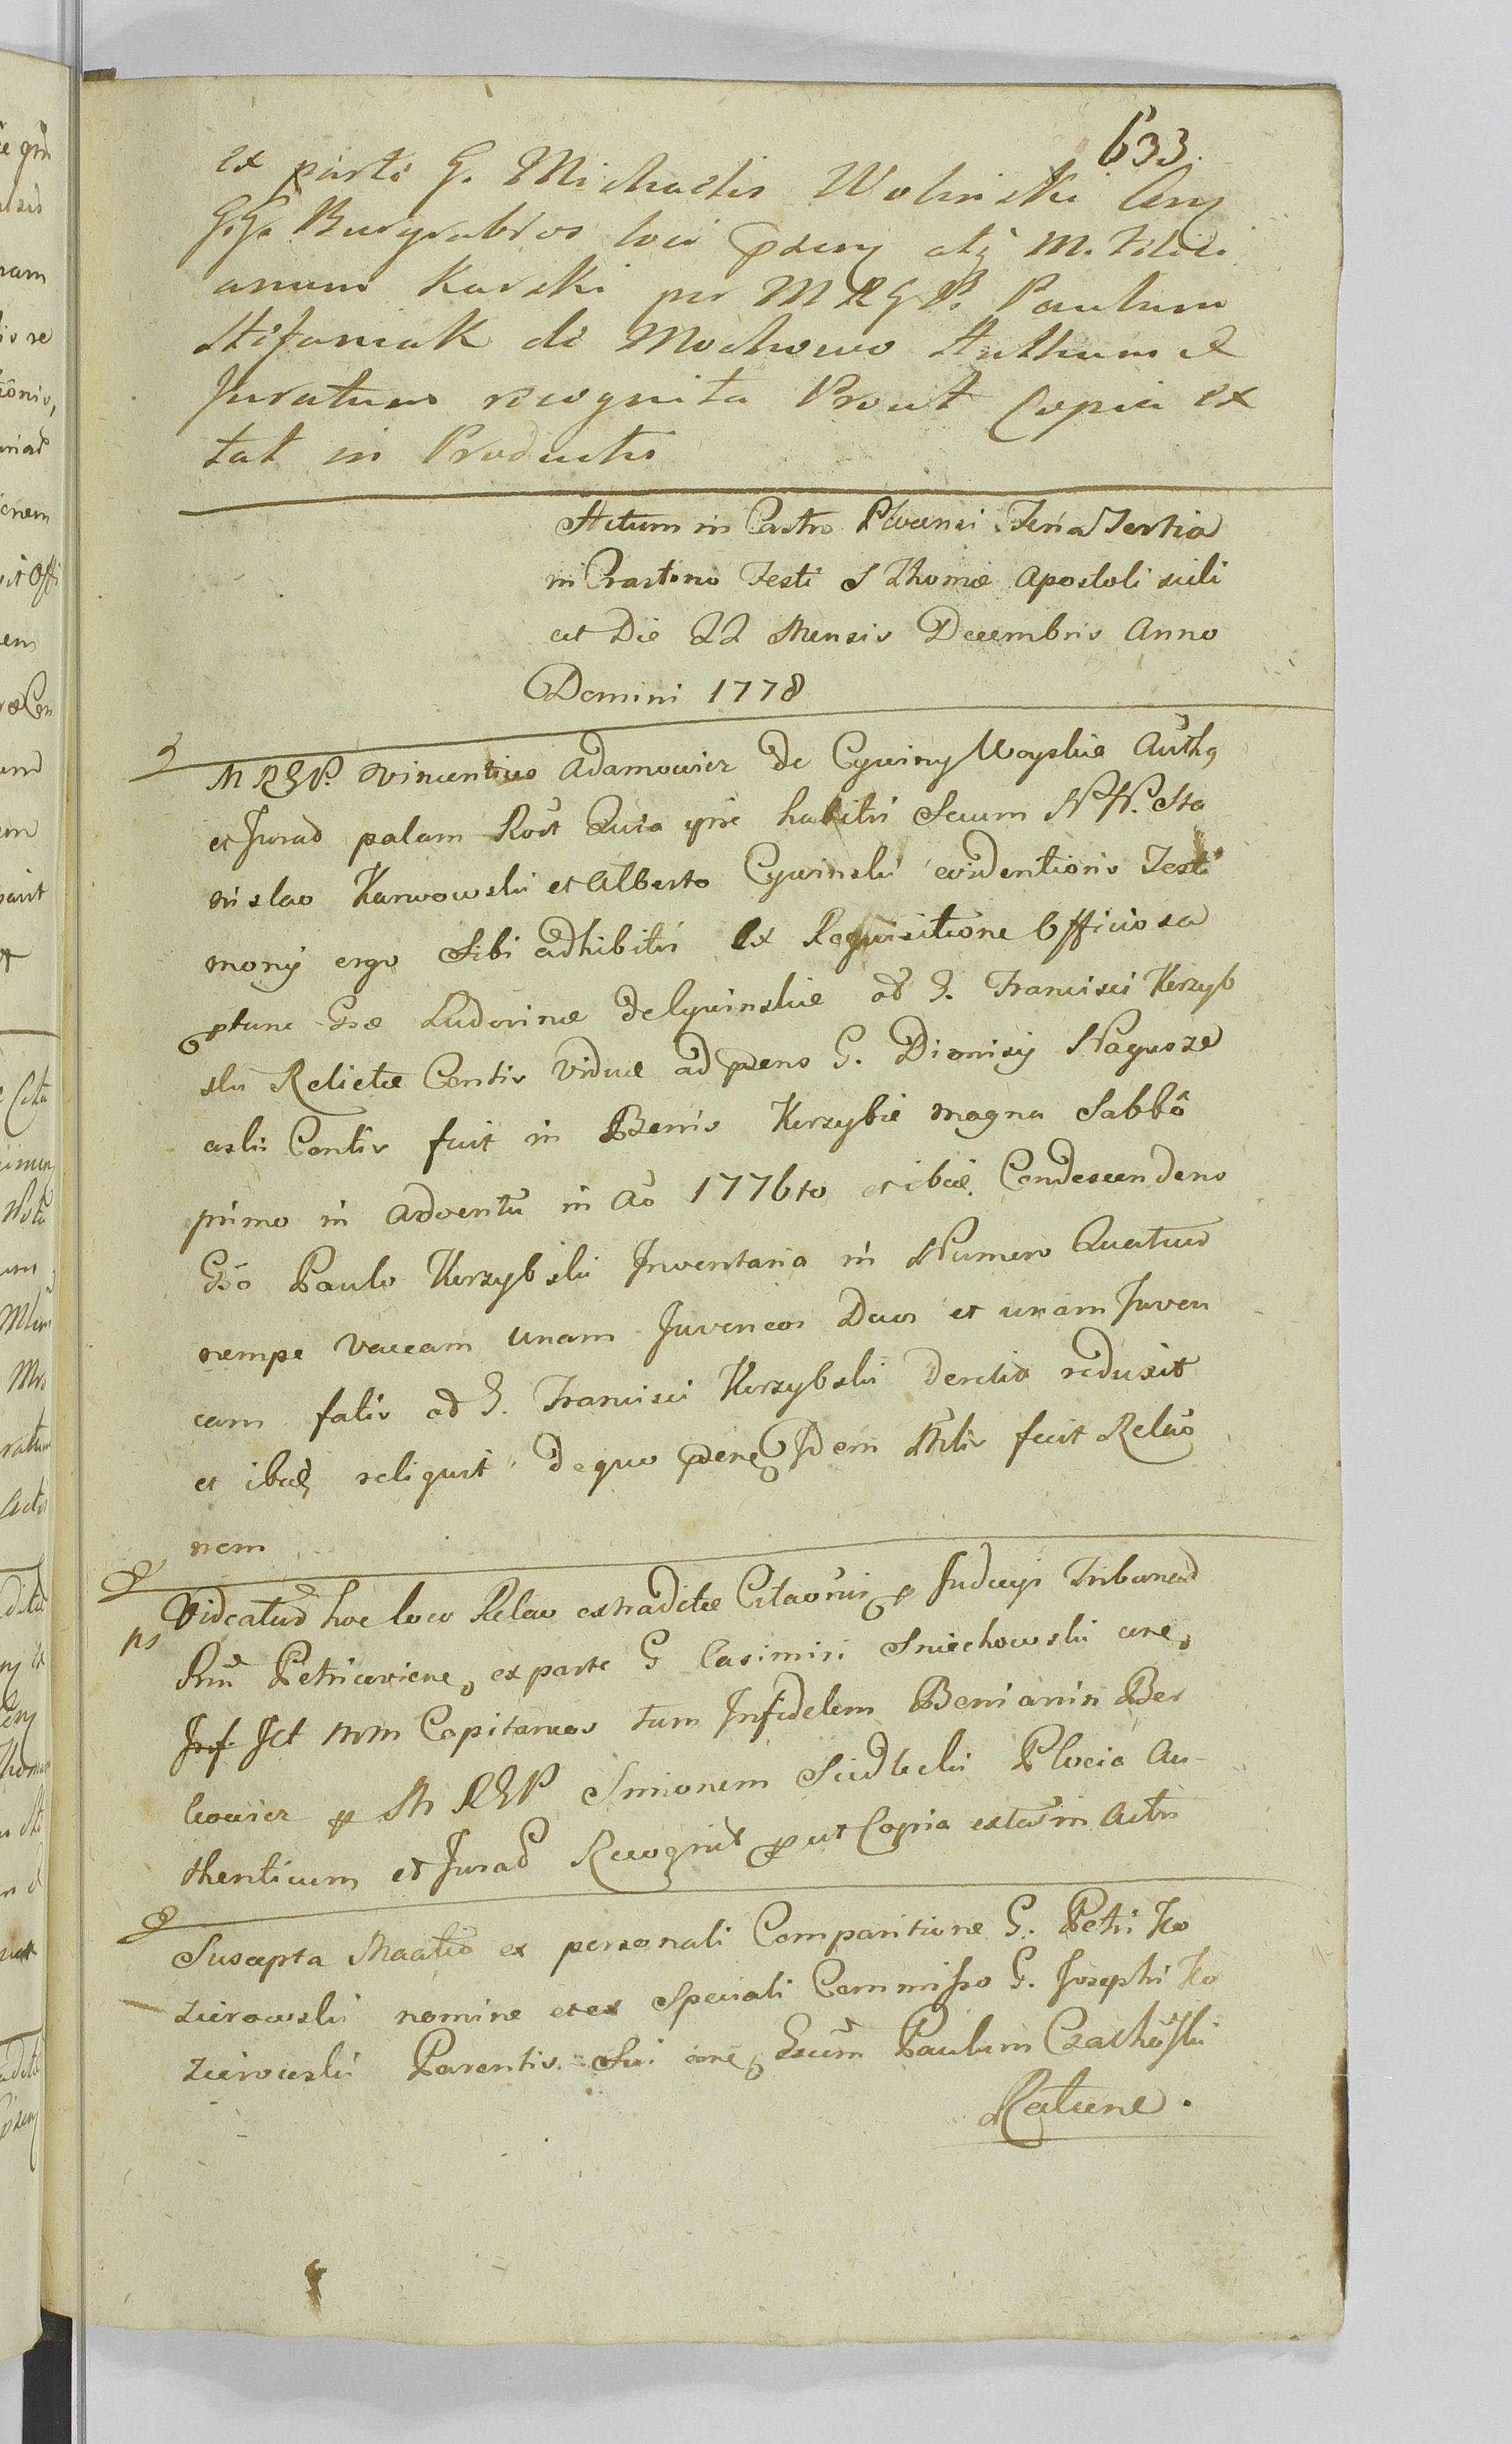 633.
ex parte G. Michaelis Wolinski
GG. Burgrabios loci atq M. Felici
anum Karski per MRGR. Paulum
Stefaniak de Mochowo Authum &
Juratum recognita Prout Copia ex
tat in Productis
Actum in Castro Plocensi Feria Tertia
in Crastino Festi S Thomæ Apostoli scili
cet Die 22 Mensis Decembris Anno
Domini 1778
MRGP. Vincentius Adamowicz de Cywiny Woyskie Auth
et Jurad palam Rect Quia ipse habitis Secum NN. Sta
nislao Karwowski et Alberto Cywinski evidentioris Testi
monij ergo Sibi adhibitis Ex Requisitione Officiosa
Gsæ Ludovinæ de Cywinskie G. Francisci Kerzyb
ski Relictæ Contis Viduæ ad præns G. Dionisij Nagurze
wski Contis fuit in Bonis Kerzybie magna Sabbo
primo in Adventu in Ao 1776to et ibid Condescendens
Gso Paulo Kerzybski Inventaria in Numero Quatuor
nempe vaccam unam Juvencos Duos et unam Juven
cam fatis ad G. Francisci Kerzybski derelict reduxit
et ibid reliquit de quo Idem Mlis fecit Relao
nem
ps
Videatur hoc loco Relao extraditæ Citaonis p Judicys Tribunal
Petricoviene, ex parte G Casimiri Sniechowski cone,
Jnf. Jct MM Capitaneos tum Infidelem Beniamin Ber
kowicz p MRGP Simonem Siedlecki Plocia Au-
thenticum et Jurad Recognit put Copia extat in Actis
Suscepta Maatio ex personali Comparitione G. Petri Ko
zierowski nomine et ex Speciali Commisso G. Josephi Ko
zierowski Parentis Sui cone Gsum Paulum
Ratune.